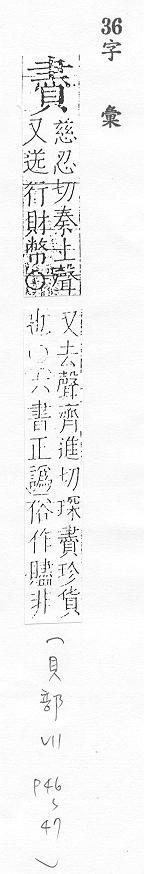 36
字彙
賮
慈忍切秦上聲
又送行財幣
又去聲齊進切琛賮珍貨
也〇六書正譌俗作贐非
(貝部 VII P46~47)